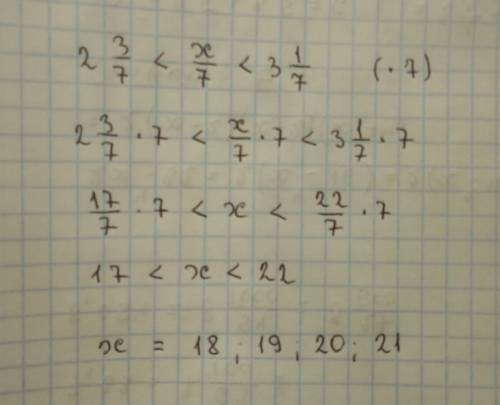 2 3/7 < x/7 < 3 1/7 (· 7)
2 3/7 · 7 < x/7 · 7 < 3 1/7 · 7
17/7 · 7 < x < 22/7 · 7
17 < x < 22
x = 18 ; 19 ; 20 ; 21